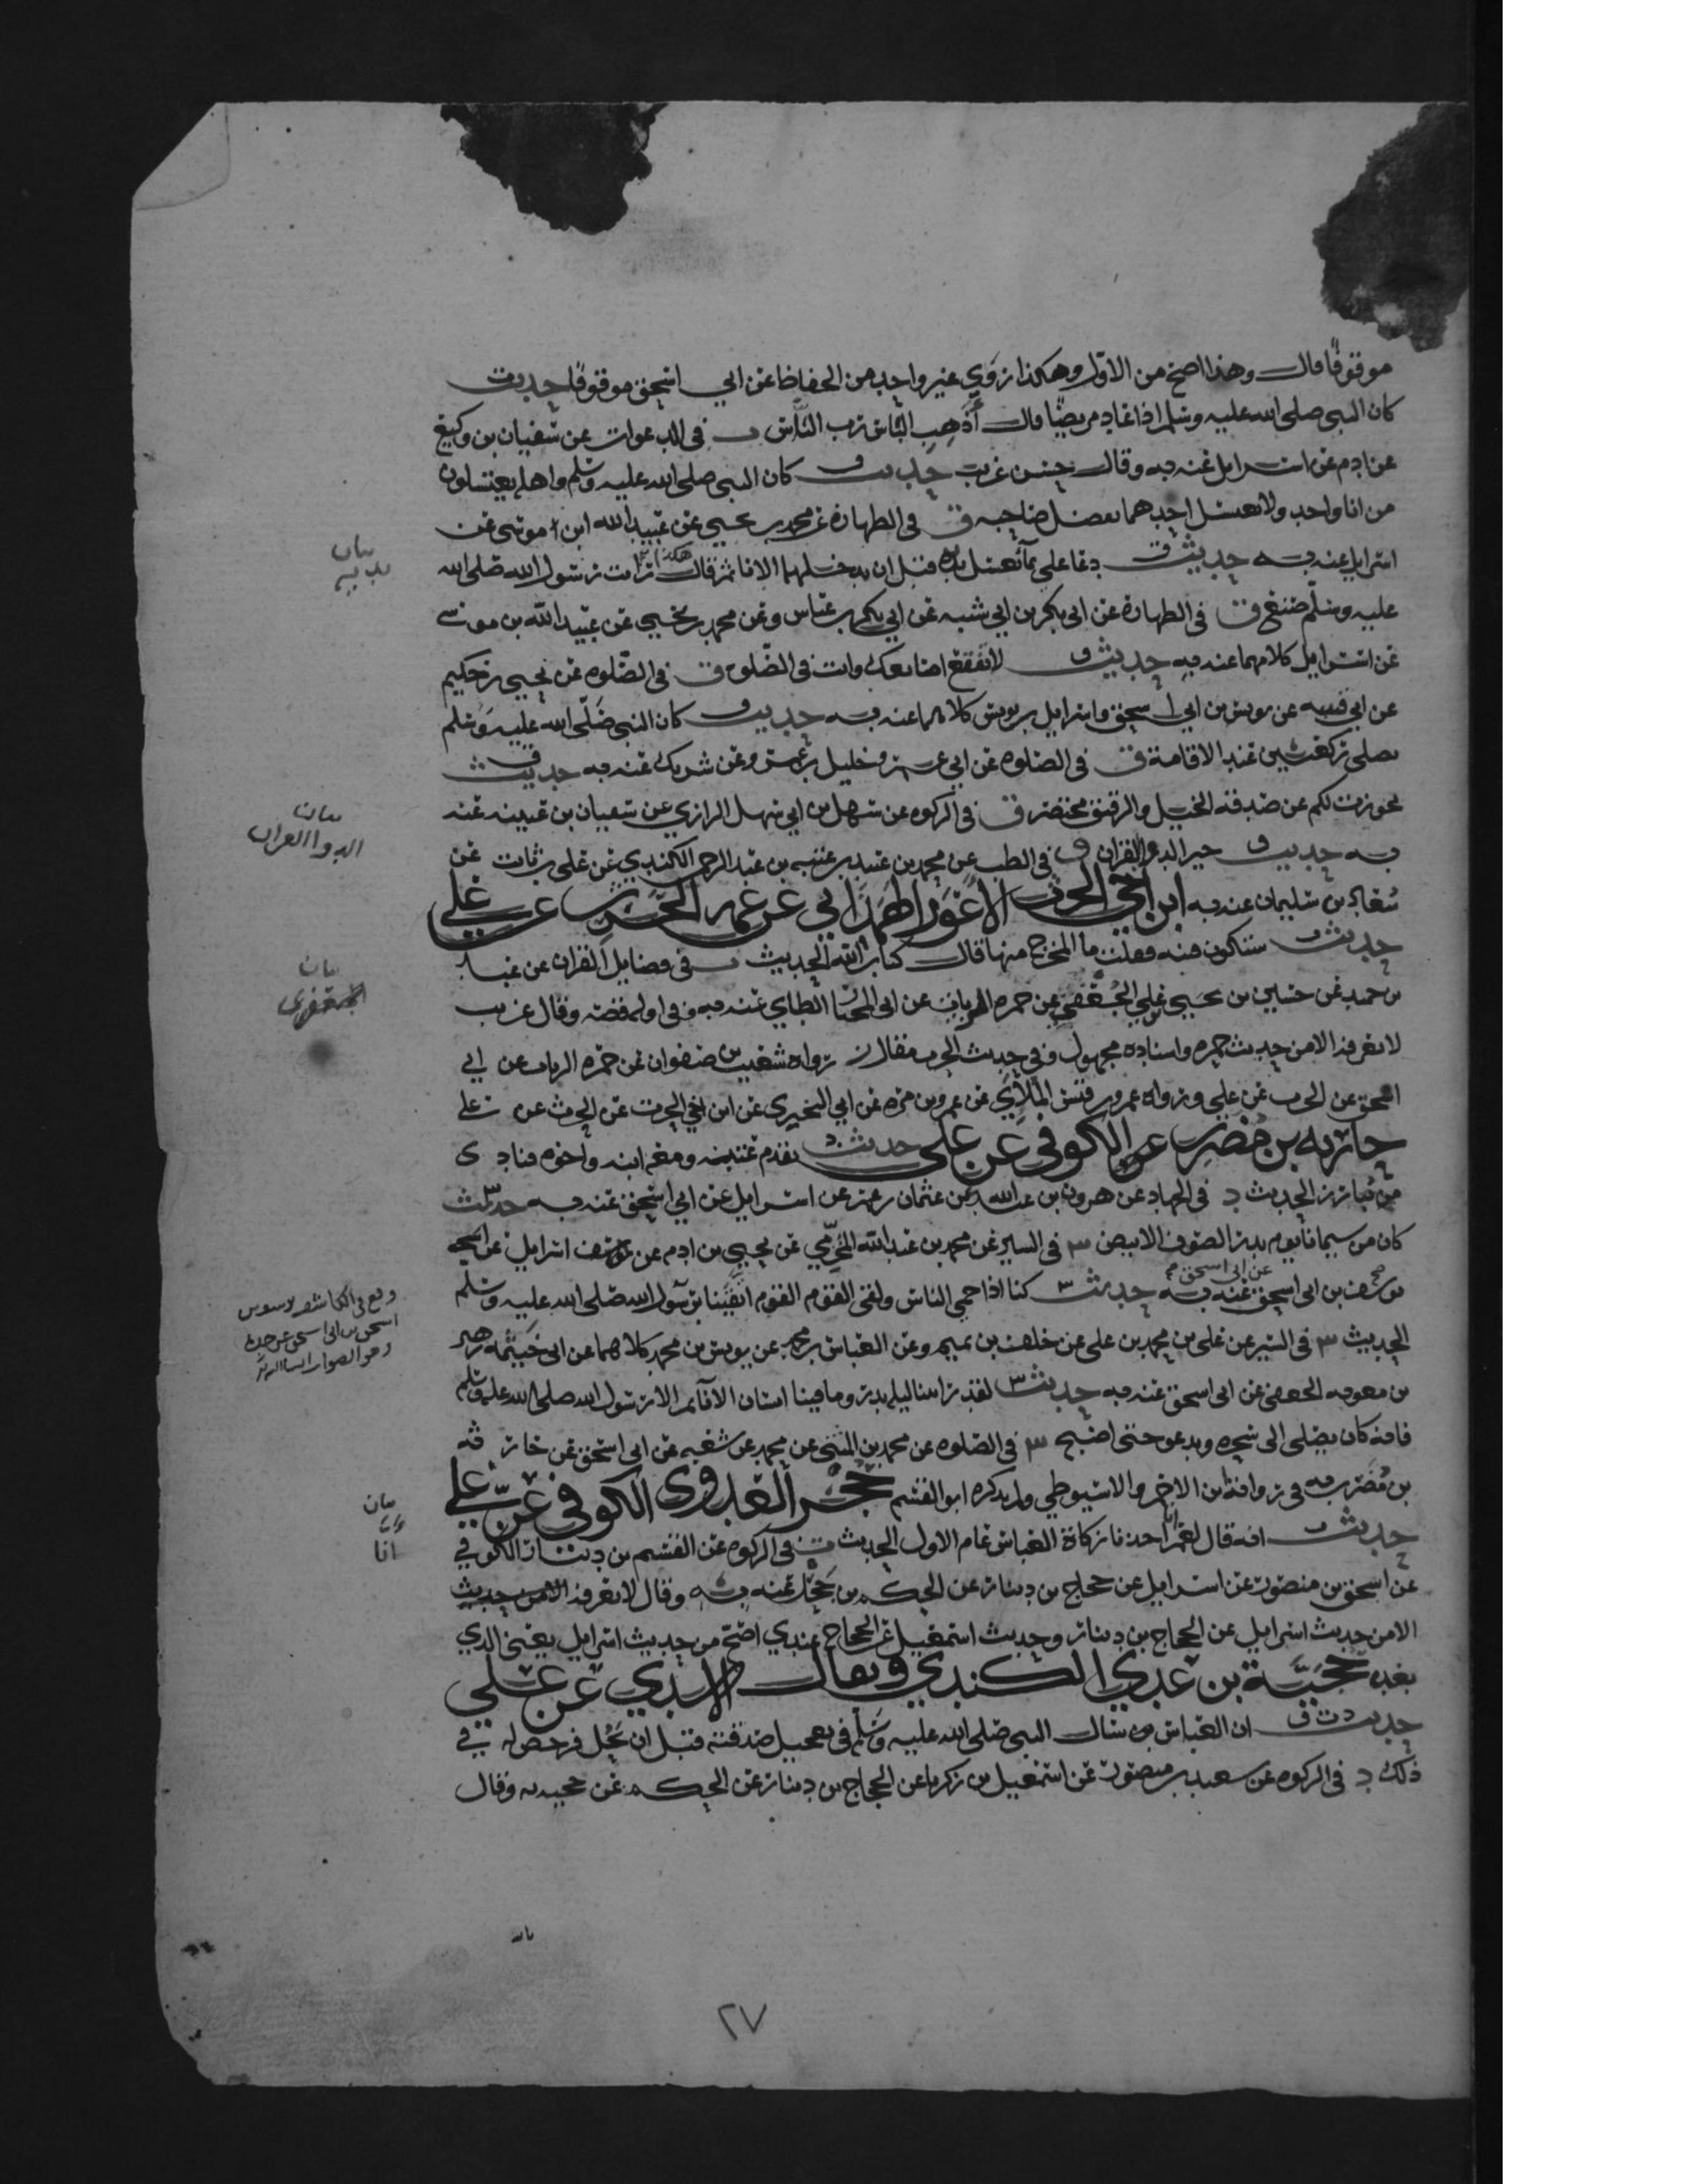 موقوفًا قال وهذا اصح من الاول وهكذا روي غير واحد من الحفاظ عن ابي اسحق موقوفًا حديث
كان النبي صلى الله عليه وسلم اذا عاد مريضًا قال أَذْهِب الباس رب الناس ت في الدعوات عن سفيان بن وكيع
عن ادم عن اسرايل عنه به وقال حسن غريب حديث ق كان النبي صلى الله عليه وسلم واهله يغتسلون
من انا واحد ولا يغتسل احدهما بفضل صاحبه ق في الطهارة عن محمد بن يحيى عن عبيد الله ابن موسى عن
اسرايل عنه به حديث ق دعا على بما فغسل يديه قبل ان يدخلهما الانا ثم قال هكذا رايت رسول الله صلى الله
عليه وسلم صنع ق في الطهارة عن ابي بكر بن ابي شيبه عن ابي بكر بن عياش وعن محمد بن يحيى عن عبيد الله بن موسى
عن اسرايل كلاهما عنه به حديث ق لا تفقع اصابعك وانت في الصلوة ق في الصلوه عن يحيى بن حكيم
عن ابي قتيبه عن يونس بن ابي اسحق واسرايل بن يونس كلاهما عنه به حديث ق كان النبي صلى الله عليه وسلم
يصلي ركعتين عند الاقامة ق في الصلوه عن الخليل بن عمرو عن شريك عنه به حديث ق
تجوزت لكم عن صدقة الخيل والرقيق مختصر ق في الزكوه عن سهل بن ابي سهل الرازي عن سفيان بن عيينه عنه
به حديث ق خير الدوا القران ق في الطب عن محمد بن عبيد بن عتبه بن عبد الرحمن الكندي عن علي بن ثابت عن
سعاد بن سليمان عنه به ابن اخي الحرث الاعور الهمداني عن عمه الحرث عن علي
حديث ت ستكون فتنه فقلت ما المخرج منها قال كتاب الله الحديث ت في فضايل القران عن عبد
بن حميد عن حسين بن علي الجعفي عن حمزه الزيات عن ابي المختار الطاي عنه به وفي اوله قصه وقال غريب
لا نعرفه الا من حديث حمزه واسناده مجهول وفي حديث الحرث مقال ز رواه شعيب بن صفوان عن حمزه الزيات عن ابي
اسحق عن الحرث عن علي ورواه عمرو بن قيس الملاي عن عمرو بن مره عن ابي البختري عن ابن اخي الحرث عن الحرث عن علي
حارثه بن مضرب الكوفي عن علي حديث د تقدم عتبه ومعه ابنه واخوه فنادى
من يبارز الحديث د في الجهاد عن هرون بن عبد الله عن عثمان بن عمر عن اسرايل عن ابي اسحق عنه به حديث س
كان من سيمانا يوم بدر الصوف الابيض س في السير عن محمد بن عبد الله المخرمي عن يحيى بن ادم عن يوسف اسرايل عن اسحق
يوسف بن ابي اسحق عن ابي اسحق عنه به حديث س كنا اذا حمي الناس ولقي القوم القوم اتقينا برسول الله صلى الله عليه وسلم
الحديث س في السير عن علي بن محمد بن علي عن خلف بن تميم وعن العباس بن محمد عن يونس بن محمد كلاهما عن ابي خيثمه زهير
بن معويه الجعفي عن ابي اسحق عنه به حديث س لقد راينا ليله بدر وما فينا انسان الا نايم الا رسول الله صلى الله عليه وسلم
فانه كان يصلي الى شجره ويدعو حتى اصبح س في الصلوه عن محمد بن المثنى عن محمد عن شعبه عن ابي اسحق عن حارثه
بن مضرب به في رواية ابن الاحمر والاسيوطي ولم يذكره ابو القسم حجر العدوي الكوفي عن علي
حديث ت انه قال لعمر انا اخذنا زكاة العباس عام الاول الحديث ت في الزكوه عن القسم بن دينار الكوفي
عن اسحق بن منصور عن اسرايل عن حجاج بن دينار عن الحكم بن جحل عنه به وقال لا نعرفه
الا من حديث اسرايل عن الحجاج بن دينار وحديث اسمعيل عن الحجاج عندي اصح من حديث اسرايل يعني الذي
بعده حجية بن عدي الكندي ويقال الاسدي عن علي
حديث د ت ق ان العباس سال النبي صلى الله عليه وسلم في تعجيل صدقته قبل ان تحل فرخص له في
ذلك د في الزكوه عن سعيد بن منصور عن اسمعيل بن زكريا عن الحجاج بن دينار عن الحكم عن حجيه به وقال
بيان
يديه
بيان
الدوا القران
بيان
الجعفي
بيان
انا
٢٧